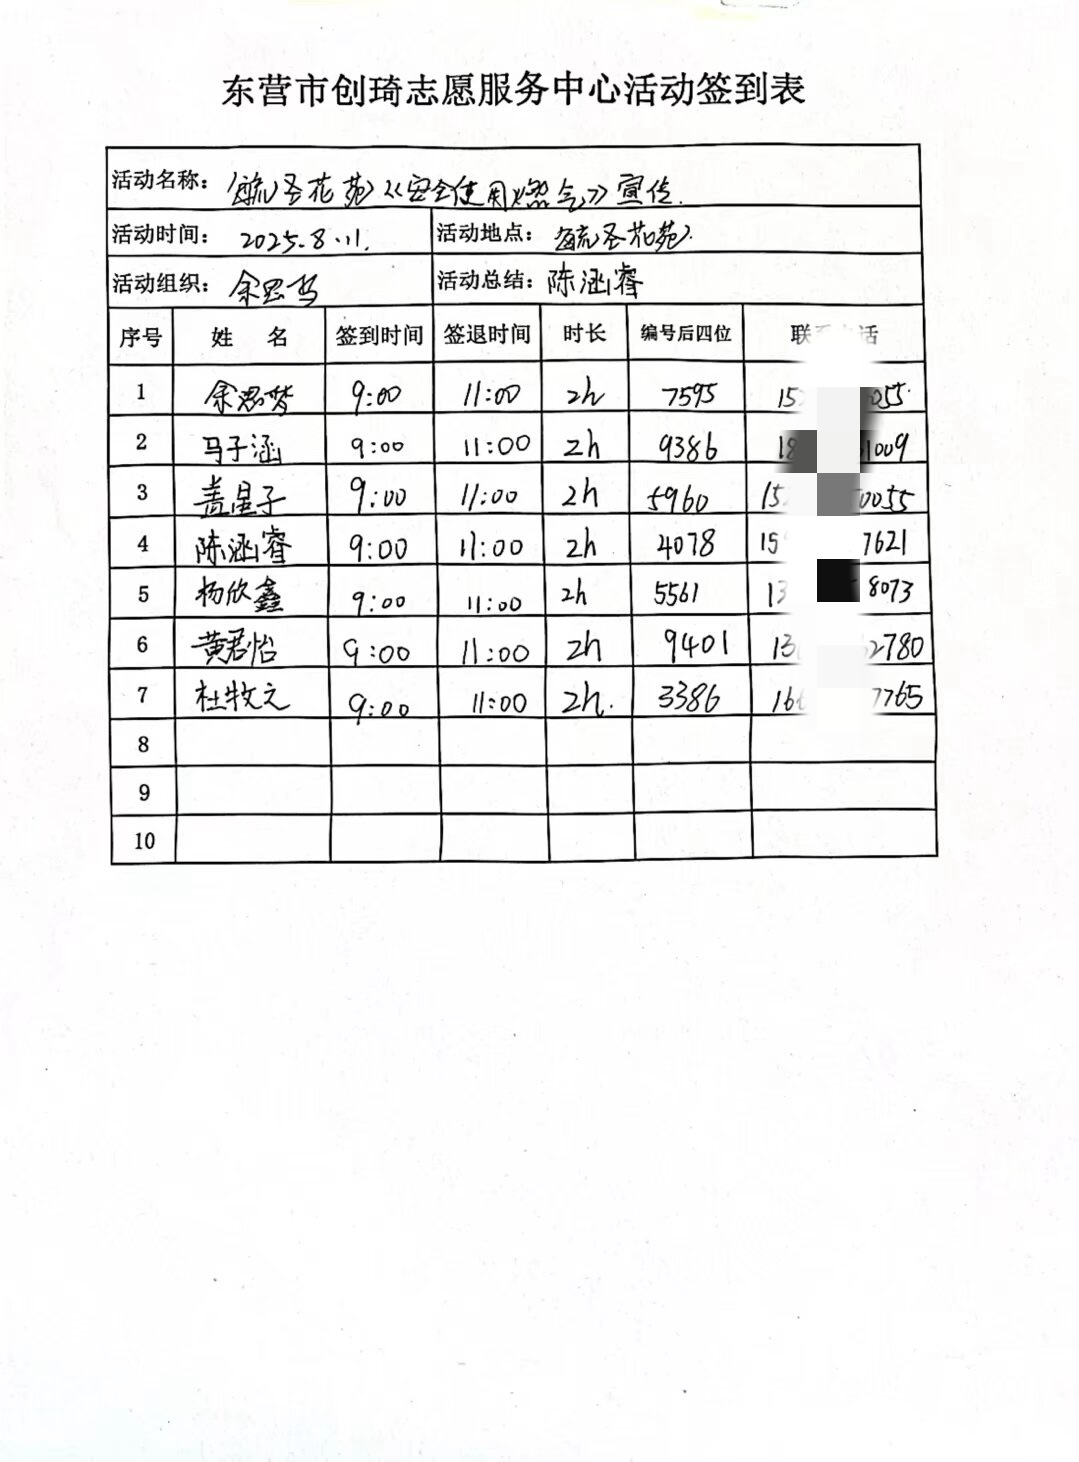 东营市创琦志愿服务中心活动签到表
活动名称： 圣花苑《安全使用燃气》宣传.
活动时间： 2025.8.11. 活动地点： 圣花苑.
活动组织： 余思 活动总结： 陈涵睿
序号 姓 名 签到时间 签退时间 时长 编号后四位 联 话
1 余思 9:00 11:00 2h 7595 15 055
2 马子涵 9:00 11:00 2h 9386 18 1009
3 盖星子 9:00 11:00 2h 5960 15 0055
4 陈涵睿 9:00 11:00 2h 4078 15 7621
5 杨欣鑫 9:00 11:00 2h 5561 13 8073
6 黄君怡 9:00 11:00 2h 9401 13 2780
7 杜牧之 9:00 11:00 2h. 3386 16 7765
8
9
10